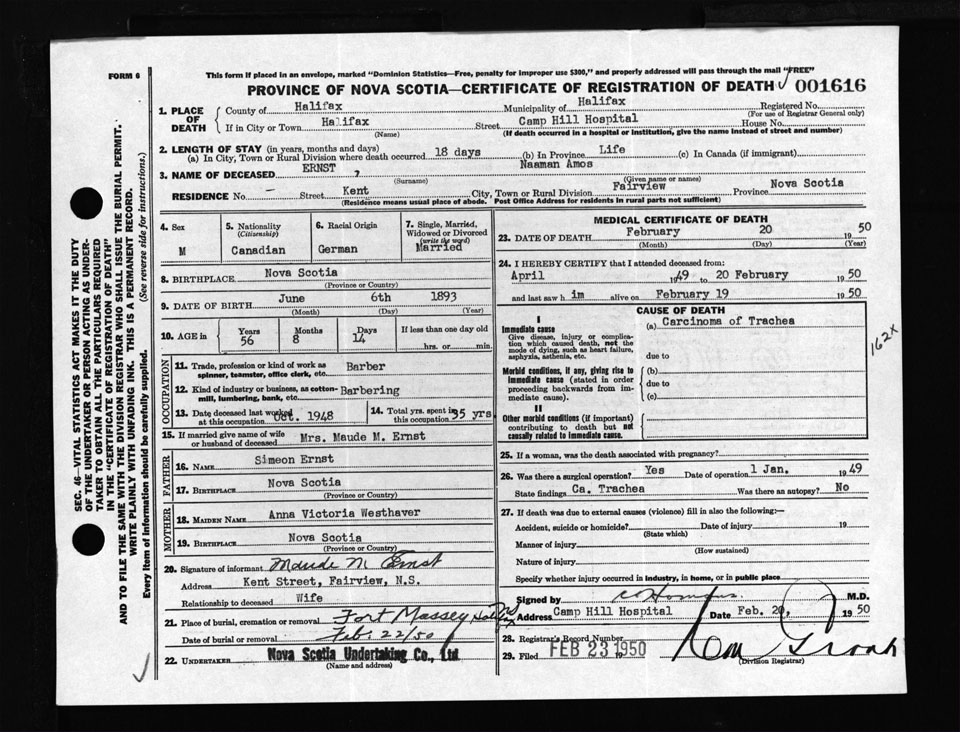 FORM 6
This form if placed in an envelope, marked "Dominion Statistics—Free, penalty for improper use $300," and properly addressed will pass through the mail "FREE"
PROVINCE OF NOVA SCOTIA—CERTIFICATE OF REGISTRATION OF DEATH 001616
1. PLACE OF DEATH
County of Halifax Municipality of Halifax Registered No.
(For use of Registrar General only)
If in City or Town Halifax Street Camp Hill Hospital House No.
(Name) (If death occurred in a hospital or institution, give the name instead of street and number)
2. LENGTH OF STAY (in years, months and days)
(a) In City, Town or Rural Division where death occurred 18 days (b) In Province Life (c) In Canada (if immigrant)
3. NAME OF DECEASED ERNST , Naaman Amos
(Surname) (Given name or names)
RESIDENCE No. - Street Kent City, Town or Rural Division Fairview Province Nova Scotia
(Residence means usual place of abode. Post Office Address for residents in rural parts not sufficient)
4. Sex M
5. Nationality (Citizenship) Canadian
6. Racial Origin German
7. Single, Married, Widowed or Divorced (write the word) Married
8. BIRTHPLACE Nova Scotia
(Province or Country)
9. DATE OF BIRTH June 6th 1893
(Month) (Day) (Year)
10. AGE in Years 56 Months 8 Days 14 If less than one day old hrs. or min.
OCCUPATION
11. Trade, profession or kind of work as spinner, teamster, office clerk, etc. Barber
12. Kind of industry or business, as cotton-mill, lumbering, bank, etc. Barbering
13. Date deceased last worked at this occupation Oct. 1948
14. Total yrs. spent in this occupation 35 yrs.
15. If married give name of wife or husband of deceased Mrs. Maude M. Ernst
FATHER
16. NAME Simeon Ernst
17. BIRTHPLACE Nova Scotia
MOTHER
18. MAIDEN NAME Anna Victoria Westhaver
19. BIRTHPLACE Nova Scotia
(Province or Country)
20. Signature of informant Maude M Ernst
Address Kent Street, Fairview, N.S.
Relationship to deceased Wife
21. Place of burial, cremation or removal Fort Massey Halifax NS
Date of burial or removal Feb. 22/50
22. UNDERTAKER Nova Scotia Undertaking Co., Ltd.
(Name and address)
MEDICAL CERTIFICATE OF DEATH
23. DATE OF DEATH February 20 1950
(Month) (Day) (Year)
24. I HEREBY CERTIFY that I attended deceased from:
April 1949 to 20 February 1950
and last saw him alive on February 19 1950
CAUSE OF DEATH
I
Immediate cause
Give disease, injury or complication which caused death, not the mode of dying, such as heart failure, asphyxia, asthenia, etc.
(a) Carcinoma of Trachea
due to
Morbid conditions, if any, giving rise to immediate cause (stated in order proceeding backwards from immediate cause).
(b)
due to
(c)
II
Other morbid conditions (if important) contributing to death but not causally related to immediate cause.
162x
25. If a woman, was the death associated with pregnancy?
26. Was there a surgical operation? Yes Date of operation 1 Jan. 1949
State findings Ca. Trachea Was there an autopsy? No
27. If death was due to external causes (violence) fill in also the following:—
Accident, suicide or homicide? Date of injury 19
(State which)
Manner of injury
(How sustained)
Nature of injury
Specify whether injury occurred in industry, in home, or in public place
Signed by M.D.
Address Camp Hill Hospital Date Feb. 20, 1950
28. Registrar's Record Number
29. Filed FEB 23 1950
(Division Registrar)
SEC. 46—VITAL STATISTICS ACT MAKES IT THE DUTY
OF THE UNDERTAKER OR PERSON ACTING AS UNDER-
TAKER TO OBTAIN ALL THE PARTICULARS REQUIRED
IN THE "CERTIFICATE OF REGISTRATION OF DEATH"
AND TO FILE THE SAME WITH THE DIVISION REGISTRAR WHO SHALL ISSUE THE BURIAL PERMIT.
WRITE PLAINLY WITH UNFADING INK. THIS IS A PERMANENT RECORD.
Every item of information should be carefully supplied. (See reverse side for instructions.)